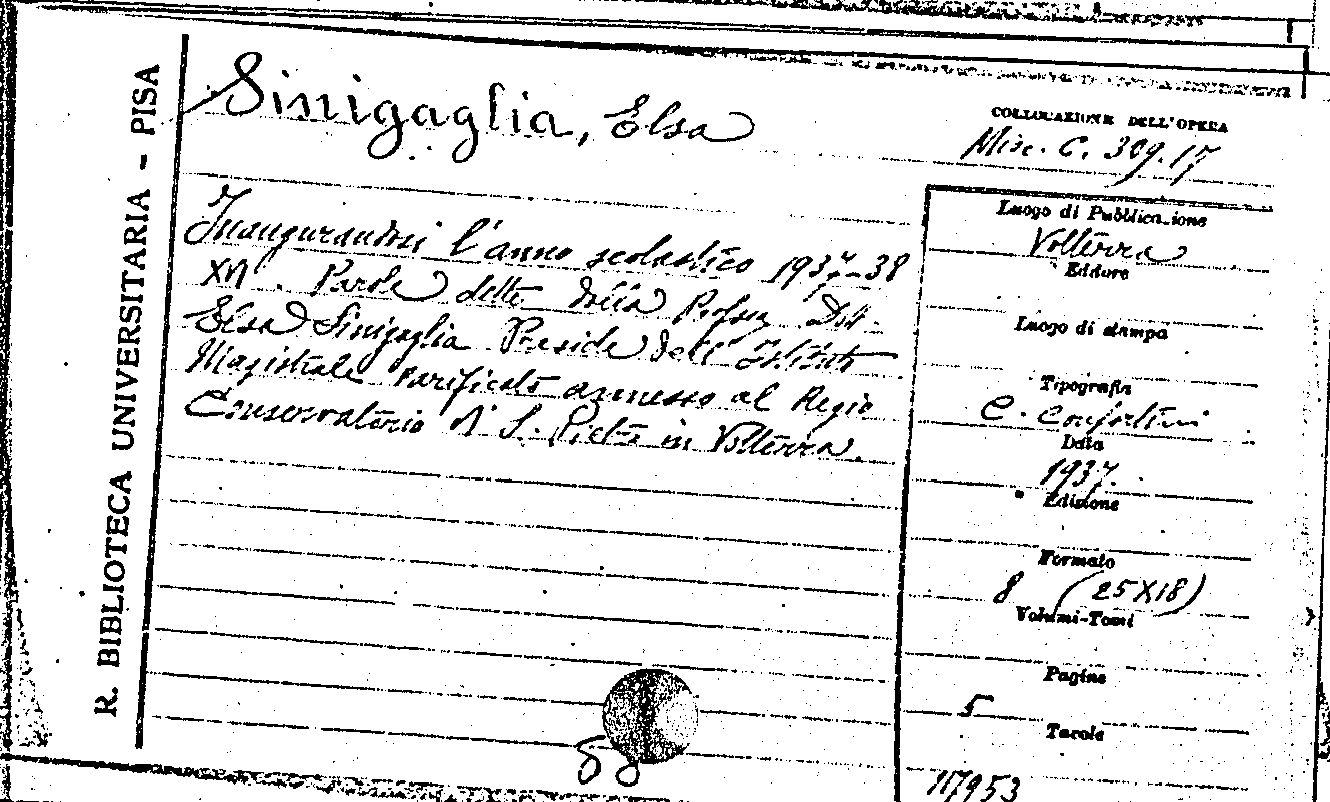 R. BIBLIOTECA UNIVERSITARIA - PISA
Sinigaglia, Elsa
COLLOCAZIONE DELL'OPERA
Misc. C. 309.17
Inaugurandosi l'anno scolastico 1937-38
XVI. Parole dette dalla Prof.ssa Dott.
Elsa Sinigaglia Preside dell'Istituto
Magistrale parificato annesso al Regio
Conservatorio di S. Pietro in Volterra.
Luogo di Pubblicazione
Volterra
Editore
Luogo di stampa
Tipografia
C. Confortini
Data
1937.
Edizione
Formato
8 (25X18)
Volumi-Tomi
Pagine
5
Tavole
117953